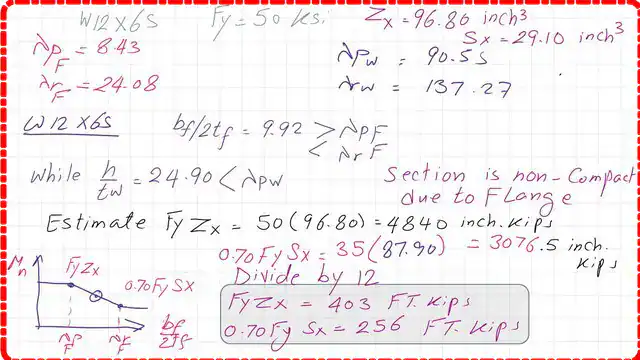 W12X65 Fy = 50 ksi Zx = 96.80 inch³
Sx = 29.10 inch³
λpF = 8.43
λrF = 24.08
λpw = 90.55
λrw = 137.27
W12X65 bf/2tf = 9.92 > λpF
< λrF
while h/tw = 24.90 < λpw
Section is non-Compact
due to Flange
Estimate FyZx = 50(96.80) = 4840 inch.kips
0.70FySx = 35(87.90) = 3076.5 inch.
kips
Divide by 12
FyZx = 403 FT.kips
0.70Fy Sx = 256 FT.kips
Mn
FyZx
0.70FySx
λpF λrF bf/2tf